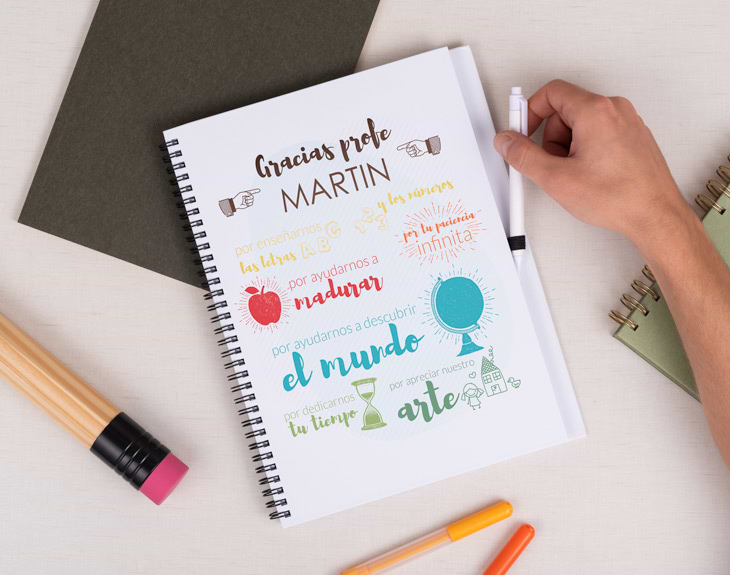 Gracias profe
MARTIN
por enseñarnos
las letras A B C
1 2 3 y los números
por tu paciencia
infinita
por ayudarnos a
madurar
por ayudarnos a descubrir
el mundo
por dedicarnos
tu tiempo
por apreciar nuestro
arte